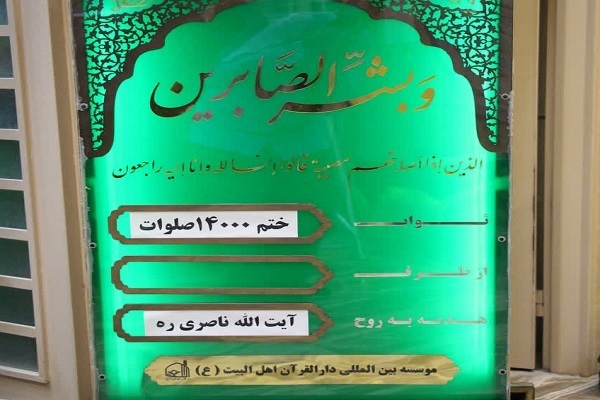 وَبَشِّرِ الصَّابِرِين
الذین إذا أصابتهم مصیبة قالوا إنا لله وانا إلیه راجعون
ثواب ختم ۱۴۰۰۰صلوات
از طرف
هدیه به روح آیت الله ناصری ره
موسسه بین المللی دارالقرآن اهل البیت (ع)